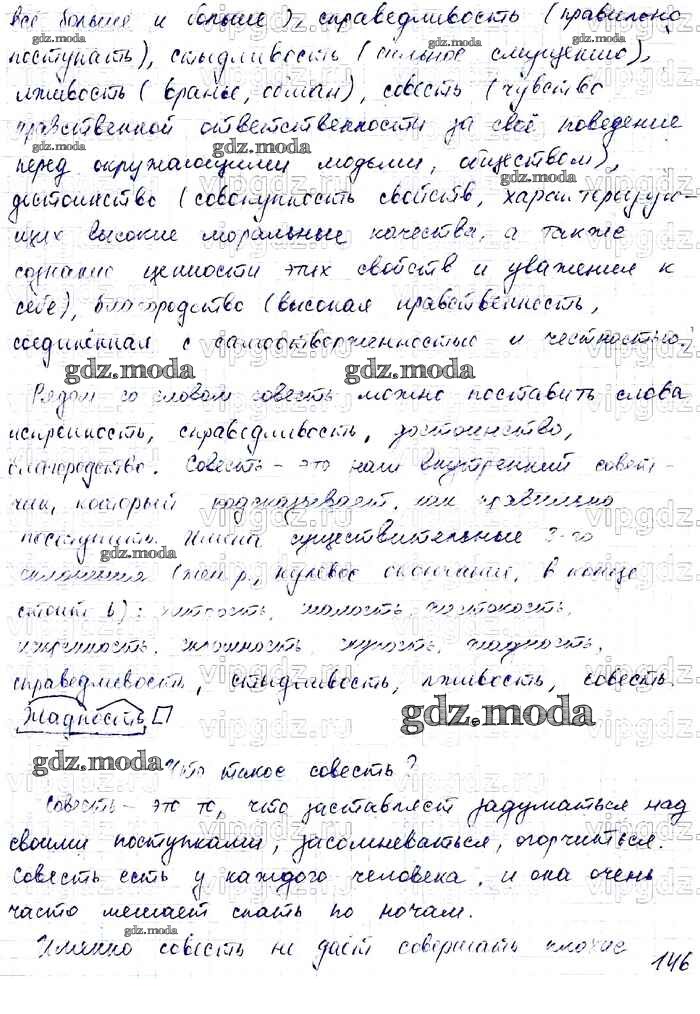 всё больше и больше), справедливость (правильно
поступать), стыдливость (сильное смущение),
лживость (враньё, обман), совесть (чувство
нравственной ответственности за своё поведение
перед окружающими людьми, обществом),
достоинство (совокупность свойств, характеризую-
щих высокие моральные качества, а также
сознание ценности этих свойств и уважения к
себе), благородство (высокая нравственность,
соединённая с самоотверженностью и честностью.
Рядом со словом совесть можно поставить слова
искренность, справедливость, достоинство,
благородство. Совесть - это наш внутренний совет-
чик, который подсказывает, как правильно
поступить. Имена существительные 3-го
склонения (жен.р., нулевое окончание, в конце
стоит ь): хитрость, жестокость,
искренность, жадность,
справедливость, стыдливость, лживость, совесть.
Жадность
Что такое совесть?
Совесть - это то, что заставляет задуматься над
своими поступками, засомневаться, огорчиться.
Совесть есть у каждого человека, и она очень
часто мешает спать по ночам.
Именно совесть не даёт совершать плохие
146